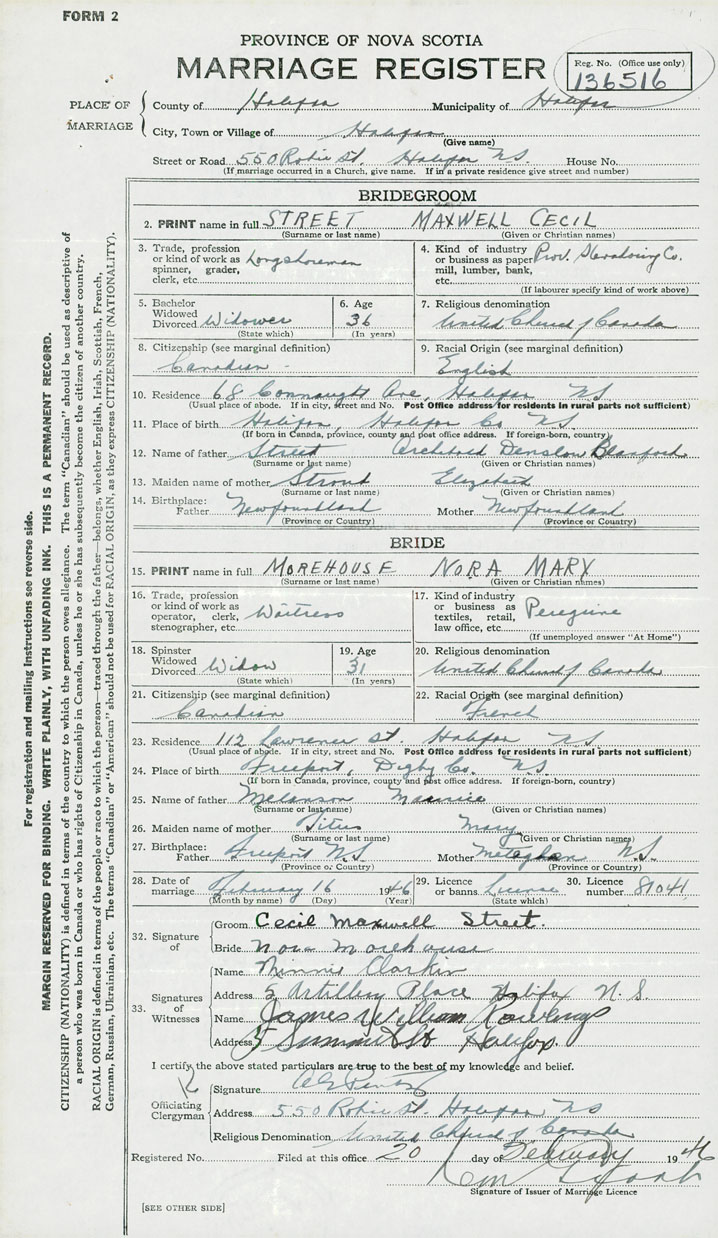 FORM 2
PROVINCE OF NOVA SCOTIA
MARRIAGE REGISTER
Reg. No. (Office use only)
136516
PLACE OF MARRIAGE
County of Halifax Municipality of Halifax
City, Town or Village of Halifax
(Give name)
Street or Road 550 Robie St. Halifax NS House No.
(If marriage occurred in a Church, give name. If in a private residence give street and number)
BRIDEGROOM
2. PRINT name in full STREET MAXWELL CECIL
(Surname or last name) (Given or Christian names)
3. Trade, profession or kind of work as spinner, grader, clerk, etc. Longshoreman
4. Kind of industry or business as paper mill, lumber, bank, etc. Prov. Stevadoring Co.
(If labourer specify kind of work above)
5. Bachelor Widowed Divorced Widower
(State which)
6. Age 36
(In years)
7. Religious denomination
United Church of Canada
8. Citizenship (see marginal definition)
Canadian
9. Racial Origin (see marginal definition)
English
10. Residence 68 Connaught Ave, Halifax NS
(Usual place of abode. If in city, street and No. Post Office address for residents in rural parts not sufficient)
11. Place of birth Halifax, Halifax Co. NS
(If born in Canada, province, county and post office address. If foreign-born, country)
12. Name of father Street Archibald Denslow Blanford
(Surname or last name) (Given or Christian names)
13. Maiden name of mother Stroud Elizabeth
(Surname or last name) (Given or Christian names)
14. Birthplace: Father Newfoundland Mother Newfoundland
(Province or Country) (Province or Country)
BRIDE
15. PRINT name in full MOREHOUSE NORA MARY
(Surname or last name) (Given or Christian names)
16. Trade, profession or kind of work as operator, clerk, stenographer, etc. Waitress
17. Kind of industry or business as textiles, retail, law office, etc. Peregrine
(If unemployed answer "At Home")
18. Spinster Widowed Divorced Widow
(State which)
19. Age 31
(In years)
20. Religious denomination
United Church of Canada
21. Citizenship (see marginal definition)
Canadian
22. Racial Origin (see marginal definition)
French
23. Residence 112 Lawrence St. Halifax NS
(Usual place of abode. If in city, street and No. Post Office address for residents in rural parts not sufficient)
24. Place of birth Freeport, Digby Co. N.S.
(If born in Canada, province, county and post office address. If foreign-born, country)
25. Name of father Melanson Maurice
(Surname or last name) (Given or Christian names)
26. Maiden name of mother Titus Mary
(Surname or last name) (Given or Christian names)
27. Birthplace: Father Freeport N.S. Mother Meteghan N.S.
(Province or Country) (Province or Country)
28. Date of marriage February 16 1946
(Month by name) (Day) (Year)
29. Licence or banns License
(State which)
30. Licence number 81041
32. Signature of
Groom Cecil Maxwell Street.
Bride Nora Morehouse
33. Signatures of Witnesses
Name Minnie Clarkin
Address 5 Artillery Place Halifax N.S.
Name James William Rowlings
Address 5 Summit St Halifax
I certify the above stated particulars are true to the best of my knowledge and belief.
Officiating Clergyman
Signature
Address 550 Robie St. Halifax NS
Religious Denomination United Church of Canada
Registered No. Filed at this office 20 day of February 1946
Signature of Issuer of Marriage Licence
[SEE OTHER SIDE]
For registration and mailing Instructions see reverse side.
MARGIN RESERVED FOR BINDING. WRITE PLAINLY, WITH UNFADING INK. THIS IS A PERMANENT RECORD.
CITIZENSHIP (NATIONALITY) is defined in terms of the country to which the person owes allegiance. The term "Canadian" should be used as descriptive of
a person who was born in Canada or who has rights of Citizenship in Canada, unless he or she has subsequently become the citizen of another country.
RACIAL ORIGIN is defined in terms of the people or race to which the person—traced through the father—belongs, whether English, Irish, Scottish, French,
German, Russian, Ukrainian, etc. The terms "Canadian" or "American" should not be used for RACIAL ORIGIN, as they express CITIZENSHIP (NATIONALITY).